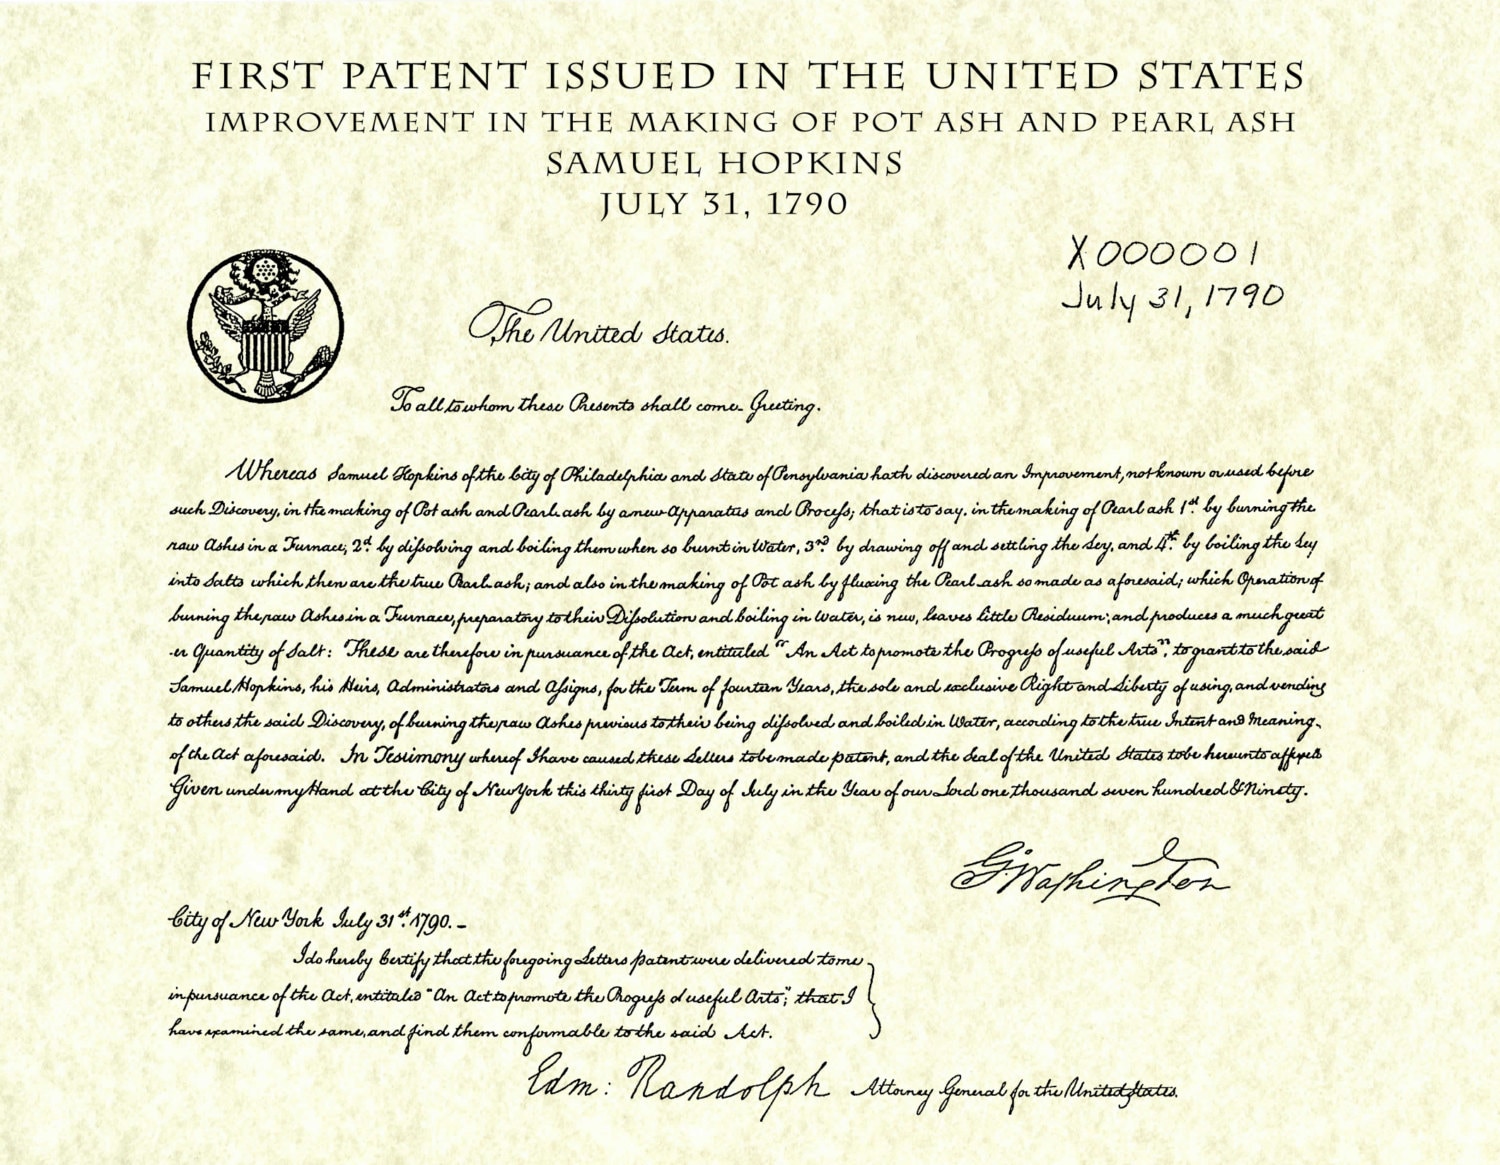 FIRST PATENT ISSUED IN THE UNITED STATES
IMPROVEMENT IN THE MAKING OF POT ASH AND PEARL ASH
SAMUEL HOPKINS
JULY 31, 1790
X000001
July 31, 1790
The United States.
To all to whom these Presents shall come Greeting.
Whereas Samuel Hopkins of the City of Philadelphia and State of Pensylvania hath discovered an Improvement, not known or used before
such Discovery, in the making of Pot ash and Pearl ash by a new Apparatus and Process; that is to say, in the making of Pearl ash 1st. by burning the
raw Ashes in a Furnace, 2d. by dissolving and boiling them when so burnt in Water, 3rd. by drawing off and settling the Ley, and 4th. by boiling the Ley
into Salts which then are the true Pearl ash; and also in the making of Pot ash by fluxing the Pearl ash so made as aforesaid; which Operation of
burning the raw Ashes in a Furnace, preparatory to their Dissolution and boiling in Water, is new, leaves little Residuum; and produces a much great
er Quantity of Salt: These are therefore in pursuance of the Act, entituled "An Act to promote the Progress of useful Arts", to grant to the said
Samuel Hopkins, his Heirs, Administrators and Assigns, for the Term of fourteen Years, the sole and exclusive Right and Liberty of using, and vending
to others the said Discovery, of burning the raw Ashes previous to their being dissolved and boiled in Water, according to the true Intent and Meaning
of the Act aforesaid. In Testimony whereof I have caused these Letters to be made patent, and the Seal of the United States to be hereunto affixed
Given under my Hand at the City of New York this thirty first Day of July in the Year of our Lord one thousand seven hundred & Ninety.
G. Washington
City of New York July 31st. 1790.-
I do hereby Certify that the foregoing Letters patent were delivered to me
in pursuance of the Act, entituled "An Act to promote the Progress of useful Arts"; that I
have examined the same, and find them conformable to the said Act.
Edm: Randolph Attorney General for the United States.